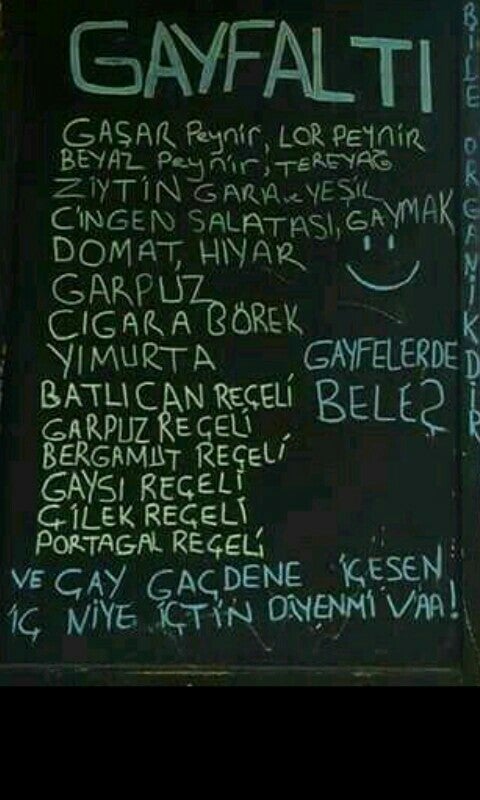 GAYFALTI
GAŞAR PEYNİR, LOR PEYNİR
BEYAZ PEYNİR, TEREYAĞ
ZİYTİN GARA ve YEŞİL
CİNGEN SALATASI, GAYMAK
DOMAT, HIYAR
GARPUZ
CIGARA BÖREK
YIMURTA
GAYFELERDE
BELEŞ
BATLICAN REÇELİ
GARPUZ REÇELİ
BERGAMUT REÇELİ
GAYSI REÇELİ
ÇİLEK REÇELİ
PORTAGAL REÇELİ
VE ÇAY GAÇDENE İÇESEN
İÇ NİYE İÇTİN DİYENMİ VAA!
BİLE ORGANİKDİR